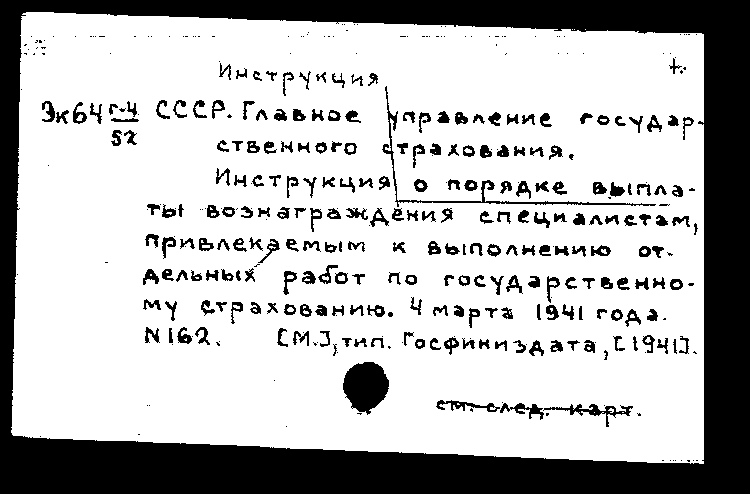 +.
Инструкция
Эк64 г-4/52 СССР. Главное управление государ-
ственного страхования.
Инструкция о порядке выпла-
ты вознаграждения специалистам,
привлекаемым к выполнению от-
дельных работ по государственно-
му страхованию. 4 марта 1941 года.
N162. [М.], тип. Госфиниздата, [1941].
см. след. карт.